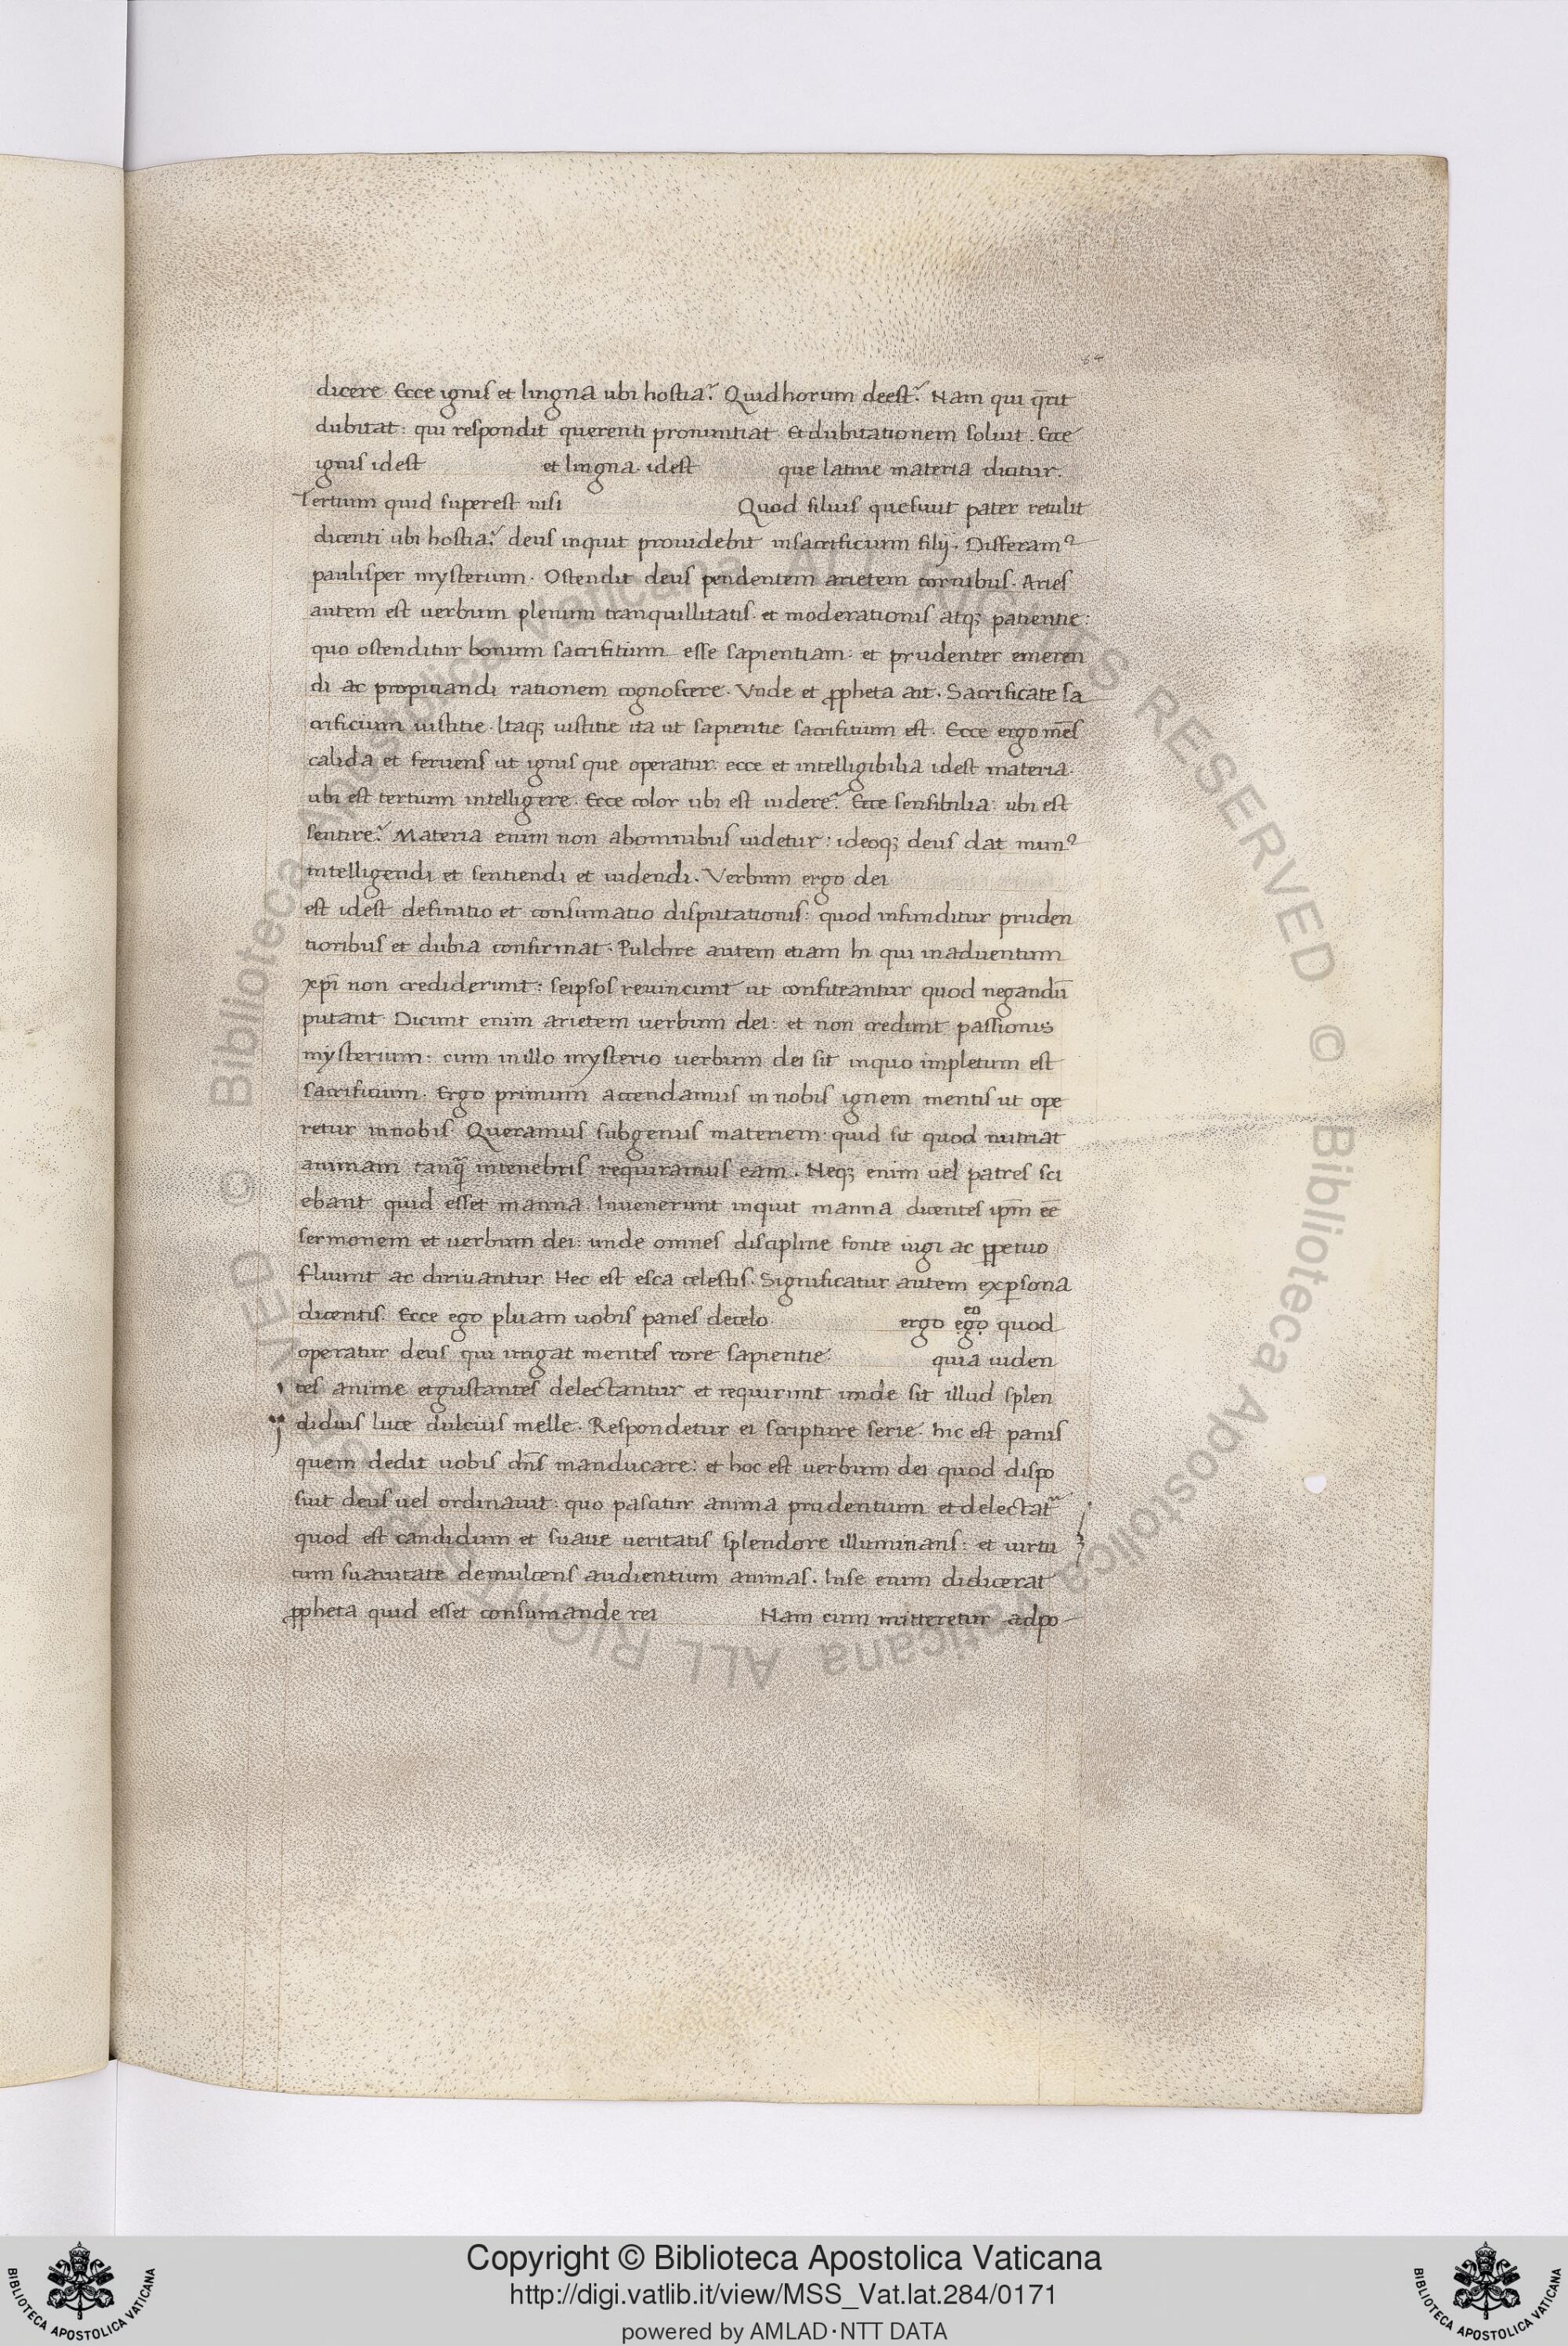 64
dicere. Ecce ignis et lingna ubi hostia? Quid horum deest? Nam qui q̄rit
dubitat: qui respondit querenti pronuntiat. Et dubitationem soluit. Ecce
ignis idest et lingna. idest que latine materia dicitur.
Tertium quid superest nisi Quod filius quesiuit pater retulit
dicenti ubi hostia? deus inquit prouidebit insacrificium filij. Differam⁹
paulisper mysterium. Ostendit deus pendentem arietem cornibus. Aries
autem est uerbum plenum tranquillitatis. et moderationis atq; patientie:
quo ostenditur bonum sacrifitium esse sapientiam: et prudenter emeren
di ac propitiandi rationem cognoscere. Vnde et ꝓpheta ait. Sacrificate sa
crificium iustitie. Itaq; iustitie ita ut sapientie sacrifitium est. Ecce ergo mēs
calida et feruens ut ignis que operatur. ecce et intelligibilia idest materia.
ubi est tertium intelligere. Ecce color ubi est uidere? Ecce sensibilia: ubi est
sentire? Materia enim non abomnibus uidetur: ideoq; deus dat mun⁹
intelligendi et sentiendi et uidendi. Verbum ergo dei
est idest definitio et consumatio disputationis: quod infunditur pruden
tioribus et dubia confirmat. Pulchre autem etiam hi qui inaduentum
xp̄i non crediderunt: seipsos reuincunt ut confiteantur quod negandū
putant. Dicunt enim arietem uerbum dei: et non credunt passionis
mysterium: cum inillo mysterio uerbum dei sit inquo impletum est
sacrificium. Ergo primum accendamus in nobis ignem mentis ut ope
retur innobis. Queramus subgenus materiem: quid sit quod nutriat
animam tanq̄ intenebris requiramus eam. Neq; enim uel patres sci
ebant quid esset manna. Inuenerunt inquit manna dicentes ipm̄ eē
sermonem et uerbum dei: unde omnes discipline fonte iugi ac ꝑpetuo
fluunt ac diriuantur. Hec est esca celestis. Significatur autem exꝑsona
dicentis. Ecce ego pluam uobis panes decelo. ergo ego quod
eo
operatur deus qui irrigat mentes rore sapientie. quia uiden
tes anime etgustantes delectantur et requirunt unde sit illud splen
didius luce dulcius melle. Respondetur ei scripture serie. hic est panis
quem dedit uobis dn̄s manducare: et hoc est uerbum dei quod dispo
suit deus uel ordinauit: quo pascitur anima prudentium et delectat᷑
quod est candidum et suaue ueritatis splendore illuminans: et uirtu
tum suauitate demulcens audientium animas. Inse enim didicerat
ꝓpheta quid esset consumande rei Nam cum mitteretur adpo
Copyright © Biblioteca Apostolica Vaticana
http://digi.vatlib.it/view/MSS_Vat.lat.284/0171
powered by AMLAD·NTT DATA
BIBLIOTECA APOSTOLICA VATICANA
BIBLIOTECA APOSTOLICA VATICANA
© Biblioteca Apostolica Vaticana ALL RIGHTS RESERVED © Biblioteca Apostolica Vaticana ALL RIGHTS RESERVED